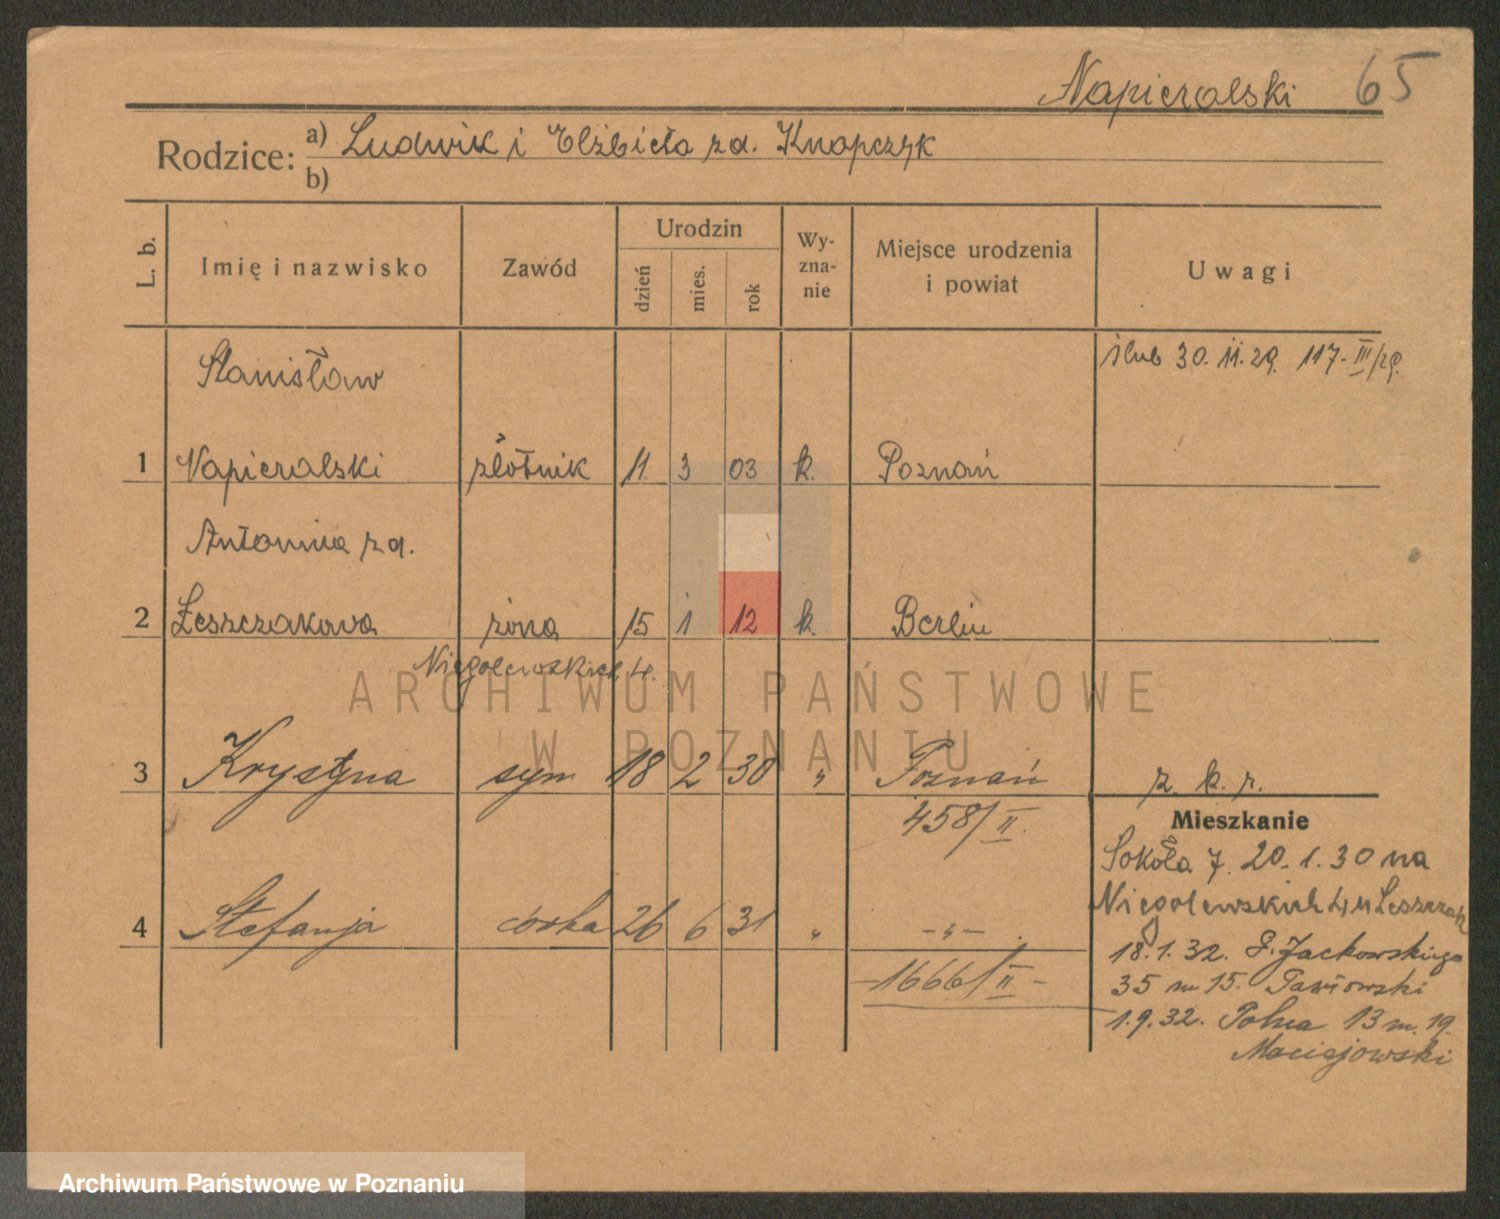 Napieralski 65
Rodzice: a) Ludwik i Elżbieta zd. Knapczyk
b)
L. b. Imię i nazwisko Zawód Urodzin dzień mies. rok Wy-zna-nie Miejsce urodzenia i powiat Uwagi
Stanisław ślub 30.11.29. 117-III/29.
1 Napieralski złotnik 11 3 03 k. Poznań
Antonina zd.
2 Leszczakowa żona 15 1 12 k. Berlin
Niegolewskich 4.
ARCHIWUM PAŃSTWOWE
W POZNANIU
3 Krystyna syn 18 2 30 " Poznań z. k. r.
458/II.
Mieszkanie
Sokoła 7. 20.1.30 na
Niegolewskich 4 u Leszczak
4 Stefanja córka 26 6 31 " -"-
18.1.32. Jackowskiego
-1666/II-
35 m 15. Pawłowski
1.9.32. Polna 13 m. 19.
Maciejowski
Archiwum Państwowe w Poznaniu